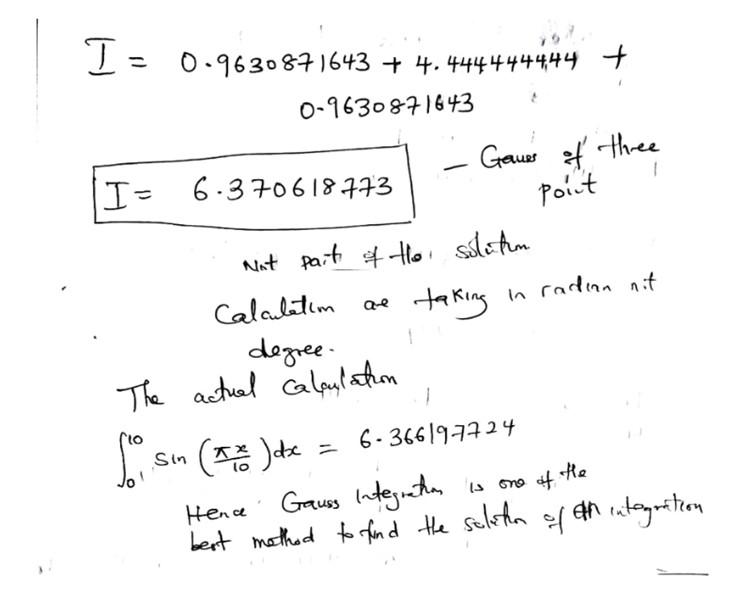 I = 0.9630871643 + 4.444444444 +
0.9630871643
I = 6.370618773 — Gauss of three
point
Not part of the solution
Calculation are taking in radian not
degree.
The actual Calculation
∫₀¹⁰ sin (πx/10) dx = 6.366197724
Hence Gauss Integration is one of the
best method to find the solution of an integration